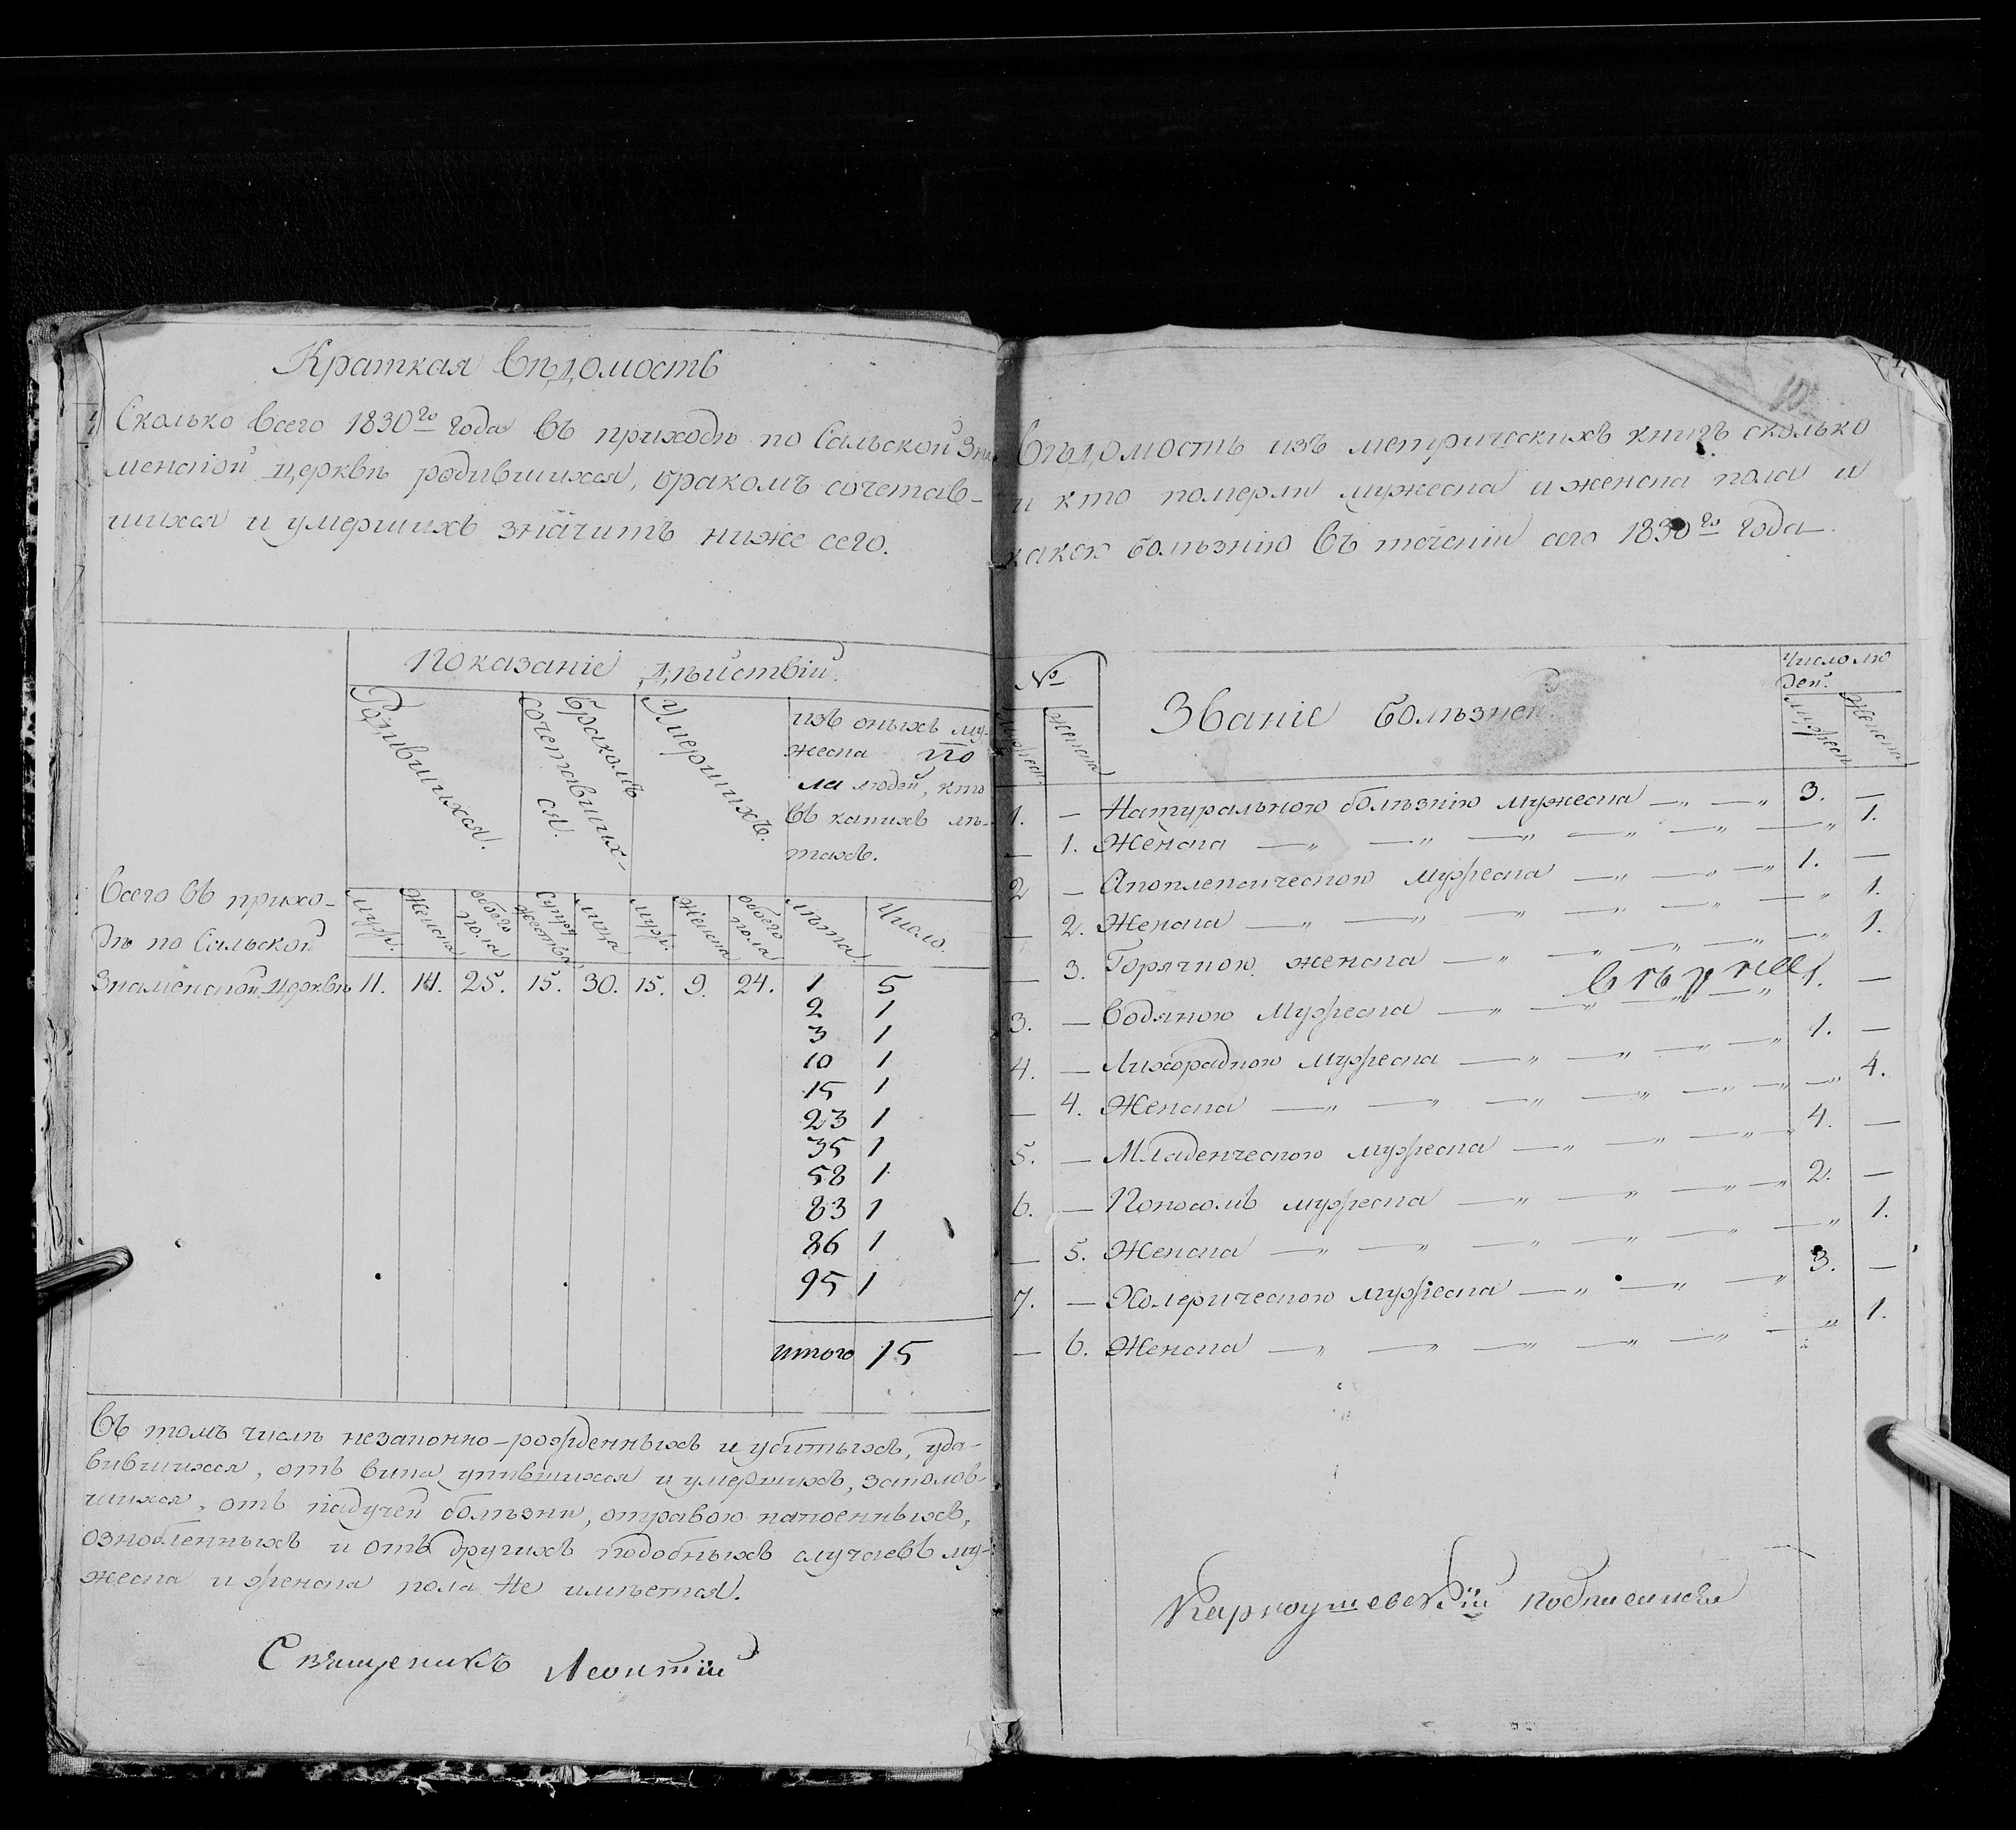 Краткая Вѣдомость
Сколько всего 1830го года въ приходѣ по Сальской Зна
менской церквѣ родившихся, бракомъ сочетав-
шихся и умершихъ значитъ ниже сего.
Показаніе дѣйствій.
Родившихся.
Бракомъ сочетавших-
ся.
Умершихъ.
изъ оныхъ му-
жеска по
ла людей, кто
въ какихъ лѣ-
тахъ.
муж.
женска
обоего пола
супружествъ
лица
муж.
женска
обоего пола
лѣта
число.
Всего въ прихо-
дѣ по Сальской
Знаменской церквѣ 11. 14. 25. 15. 30. 15. 9. 24. 1 5
2 1
3 1
10 1
15 1
23 1
35 1
58 1
83 1
86 1
95 1
итого 15
Въ томъ числѣ незаконно-рожденныхъ и убитыхъ, уда-
вившихся, отъ вина упившихся и умершихъ,
отъ падучей болѣзни, отравою напоенныхъ,
ознобленныхъ и отъ другихъ подобныхъ случаевъ му-
жеска и женска пола не имѣется.
Священикъ Леонтій
10
Вѣдомость изъ метрическихъ книгъ сколько
и кто померли мужеска и женска пола и
какою болѣзнію въ теченіи сего 1830го года
№
мужеск.
женска
Званіе болѣзней
Число лю
дей.
мужеск.
женска
1. — Натуральною болѣзнію мужеска 3. —
— 1. Женска 1.
2 — Апоплексическою мужеска 1. —
— 2. Женска 1.
— 3. Горячкою женска 1.
3. — Водяною мужеска 1. —
4. — Лихорадкою мужеска 1. —
— 4. Женска 4.
5. — Младенческою мужеска 4. —
6. — Поносомъ мужеска 2. —
— 5. Женска 1.
7. — Холерическою мужеска 3. —
— 6. Женска 1.